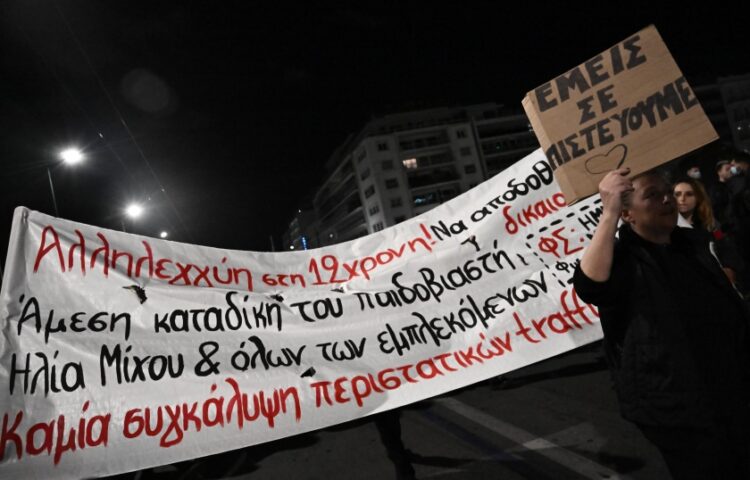 ΕΜΕΙΣ
ΣΕ
ΠΙΣΤΕΥΟΥΜΕ
Αλληλεγγύη στη 12χρονη! Να αποδοθ
δικαιο
Άμεση καταδίκη του παιδοβιαστή,
Ηλία Μίχου & όλων των εμπλεκόμενων
Καμία συγκάλυψη περιστατικών traffi
ΦΣ.